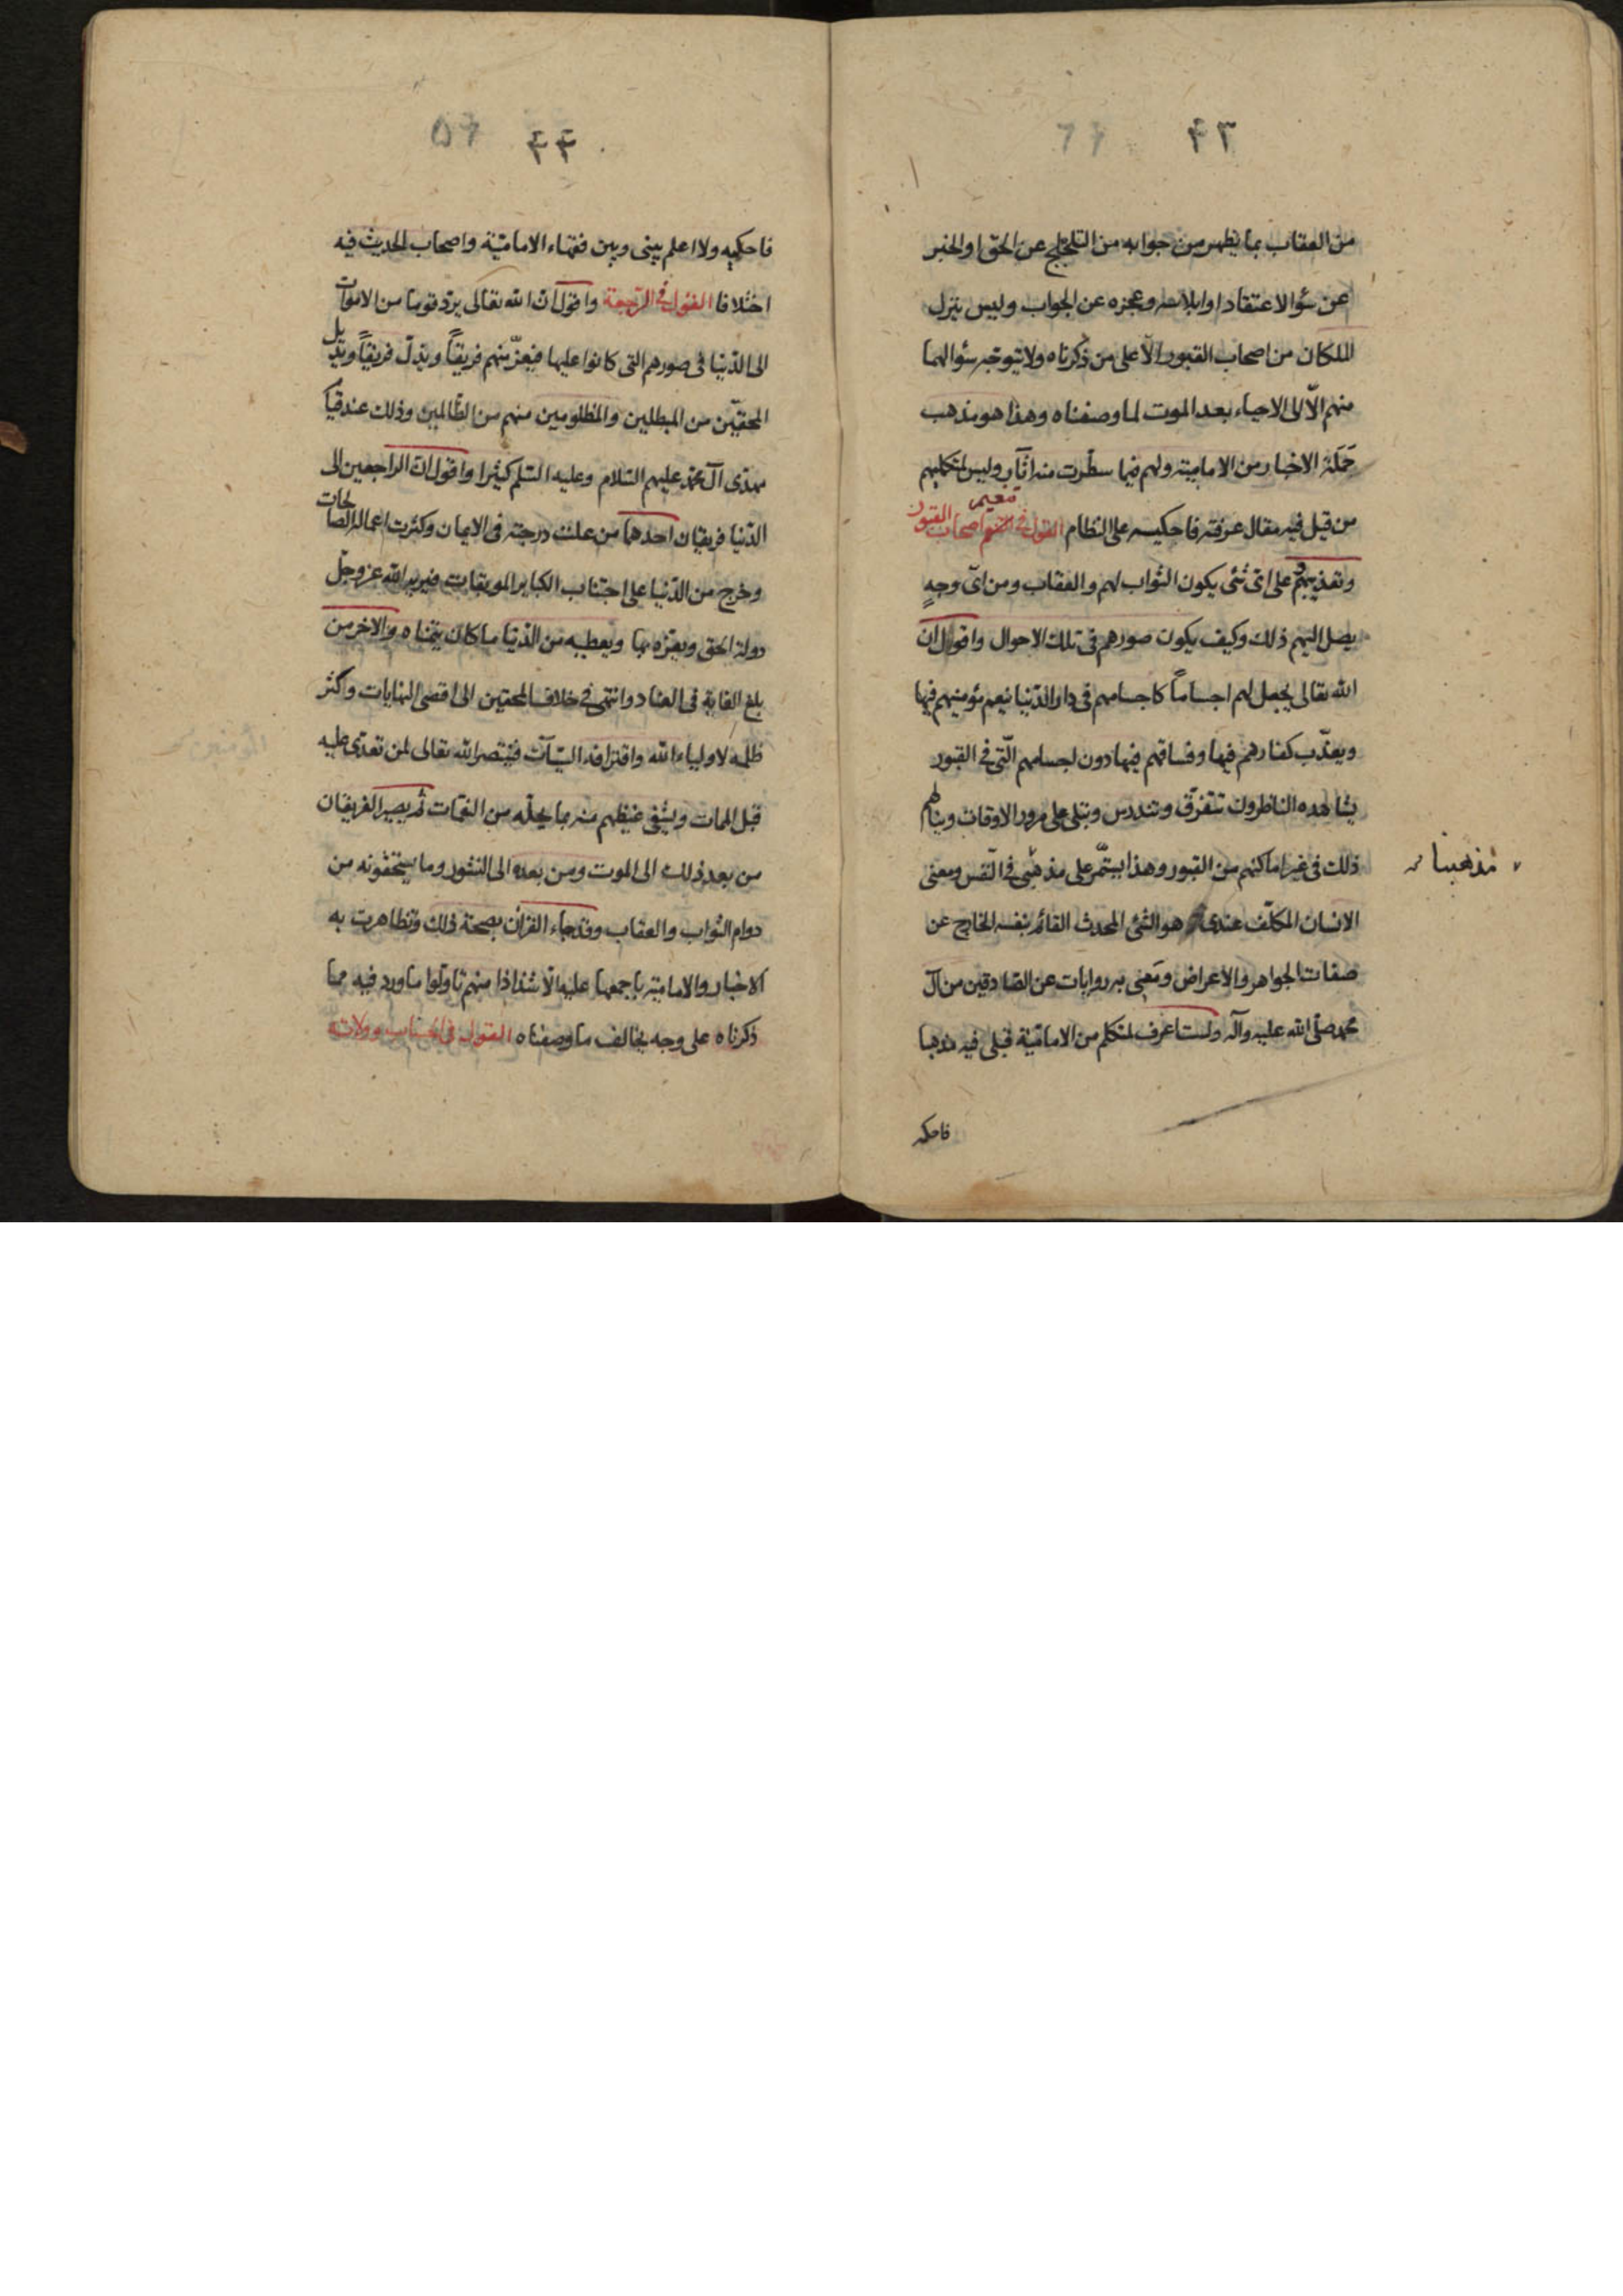 ٤٣
من العقاب بما يظهر من جوابه من التلجلج عن الحق او الخبر
عن سؤ الاعتقاد او ابلاسه وعجزه عن الجواب وليس ينزل
الملكان من اصحاب القبور الّا على من ذكرناه ولا يتوجه سؤالهما
منهم الّا الى الاحياء بعد الموت لما وصفناه وهذا هو مذهب
حَمَلة الاخبار من الامامية ولهم فيما سطّرت منه آثار وليس لمتكليهم
من قبل فيه مقال عرفته فاحكيه على النظام القول في تنعيم اصحاب القبور
وتعذيبهم على اىّ شئ يكون الثواب لهم والعقاب ومن اىّ وجهٍ
يصل اليهم ذلك وكيف يكون صورهم فى تلك الاحوال واقول ان
الله تعالى يجعل لهم اجساماً كاجسامهم فى دار الدّنيا ينعم مؤمنيهم فيها
ويعذّب كفارهم فيها وفساقهم فيها دون اجسامهم الّتى فى القبور
يشاهده الناظرون تتفرّق وتندرس وتبلى على مرور الاوقات وينالهم
ذلك فى غير اماكنهم من القبور وهذا يستمّر على مذهبى فى النّفس ومعنى
مذهبنا
الانسان المكلّف عندى هو الشئ المحدث القائم بنفسه الخارج عن
صفات الجواهر والاعراض ومَعِى به روايات عن الصّادقين من آل
محمد صلّى الله عليه وآله ولست اعرف لمتكلم من الاماميّة قبلى فيه مذهبا
فاحكيه
٤٤
فاحكيه ولا اعلم بينى وبين فقهاء الاماميّة واصحاب الحديث فيه
اختلافا القول فى الرّجعة واقول انّ الله تعالى يردّ قوما من الاموات
الى الدّنيا فى صورهم التى كانوا عليها فيعزّ منهم فريقاً ويذلّ فريقاً ويديل
المحقيّن من المبطلين والمظلومين منهم من الظّالمين وذلك عند قيام
مهدّى آل محمّد عليهم السّلام وعليه السّلم كثيرا واقول انّ الراجعين الى
الدّنيا فريقان احدهما من علت درجته فى الايمان وكثرت اعماله الصالحات
وخرج من الدّنيا على اجتناب الكباير الموبقات فيريه الله عزّ وجلّ
دولة الحق ويعزّه بها ويعطيه من الدّنيا ما كان يتمنّاه والاخر من
بلغ الغاية فى العناد وانتهى فى خلاف المحقين الى اقصى النهايات وكثر
ظلمه لاولياء الله واقترافه السّيئآت فينتصر الله تعالى لمن تعدّى عليه
قبل الممات ويشفى غيظهم منه بما يحلّه من النقمات ثم يصير الفريقان
من بعد ذلك الى الموت ومن بعده الى النشور وما يستحقونه من
دوام الثواب والعقاب وقد جاء القرآن بصحة ذلك وتظاهرت به
الاخبار والامامية باجمعها عليه الّا شذاذا منهم تاوّلوا ما ورد فيه مما
ذكرناه على وجه يخالف ما وصفناه القول فى الحساب وولاته